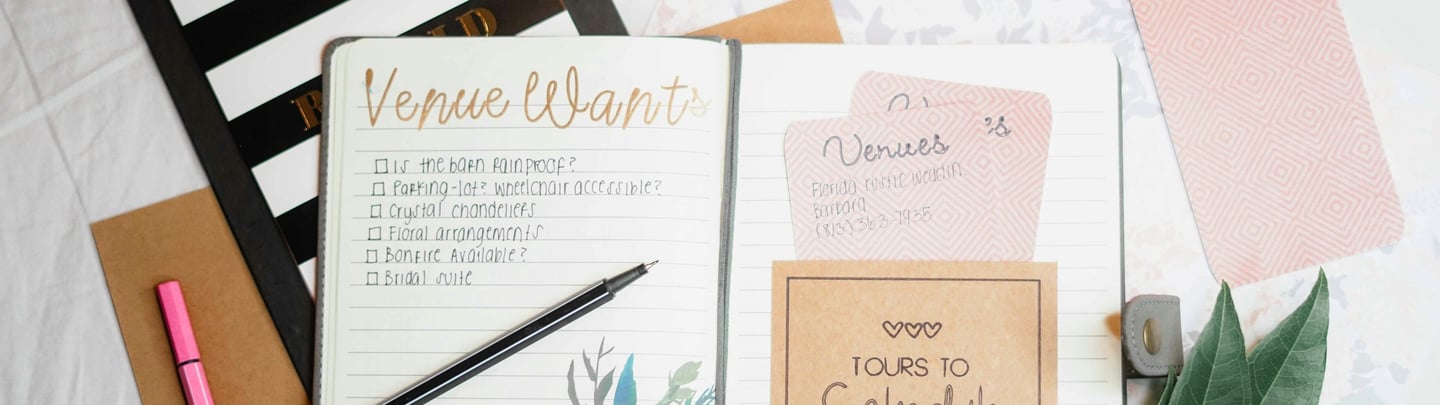 Venue Wants
Is the barn rainproof?
Parking-lot? wheelchair accessible?
Crystal chandeliers
Floral arrangements
Bonfire Available?
Bridal suite
's
Venues
Florida rustic weddin
Barbara
(813) 363-7935
TOURS TO